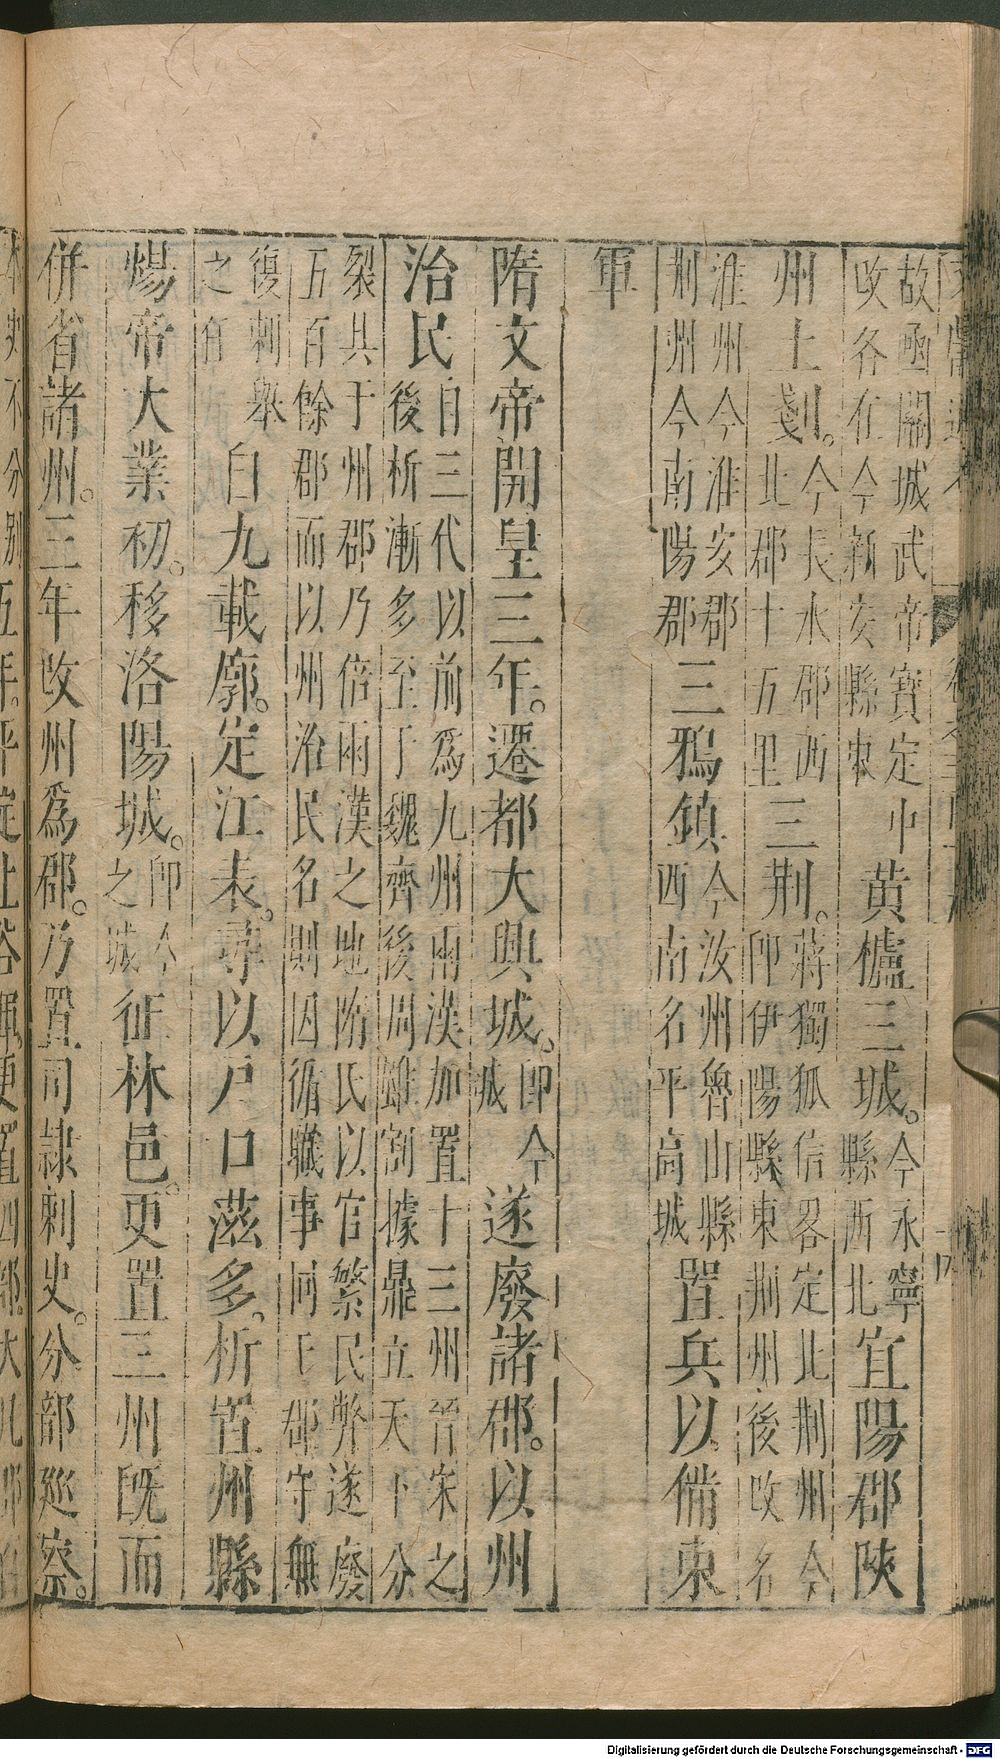 故函關城武帝寶定中
改各在今新安縣東
黃櫨三城。
今永寧
縣西北
宜陽郡陝
州土剗。
今長水郡西
北郡十五里
三荆。
蔣獨狐信畧定北荆州今
即伊陽縣東荆州後改名
淮州今淮安郡
荆州今南陽郡
三鴉鎮
今汝州魯山縣
西南名平高城
置兵以備東
軍
隋文帝開皇三年。遷都大興城。
即今
城
遂廢諸郡。以州
治民
自三代以前爲九州兩漢加置十三州晉宋之
後析漸多至于魏齊後周雖割據鼎立天下分
裂其于州郡乃倍兩漢之地隋氏以官繁民弊遂廢
五百餘郡而以州治民名則因循職事同于郡守無
復刺舉
之
自九載廓。定江表。尋以戸口滋多。析置州縣
煬帝大業初。移洛陽城。
即今
之城
征林邑。更置三州既而
併省諸州。三年改州爲郡。乃置司隸刺史。分部巡察。
Digitalisierung gefördert durch die Deutsche Forschungsgemeinschaft - DFG